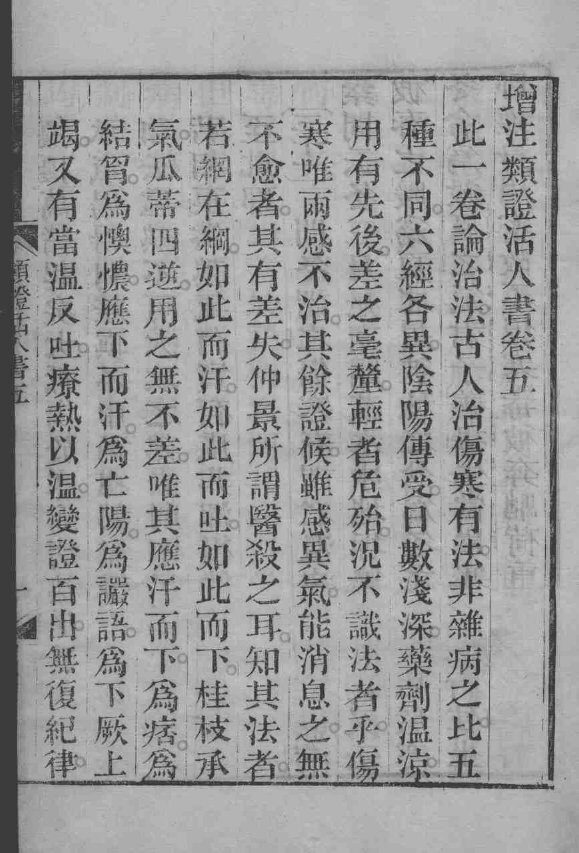 增注類證活人書卷五
此一卷論治法古人治傷寒有法非雜病之比五
種不同六經各異陰陽傳受日數淺深藥劑温涼
用有先後差之毫釐輕者危殆況不識法者乎傷
寒唯兩感不治其餘證候雖感異氣能消息之無
不愈者其有差失仲景所謂醫殺之耳知其法者
若網在綱如此而汗如此而吐如此而下桂枝承
氣瓜蒂四逆用之無不差唯其應汗而下爲痞爲
結胷爲懊憹應下而汗爲亡陽爲讝語爲下厥上
竭又有當温反吐療熱以温變證百出無復紀律
類證活人書五
一